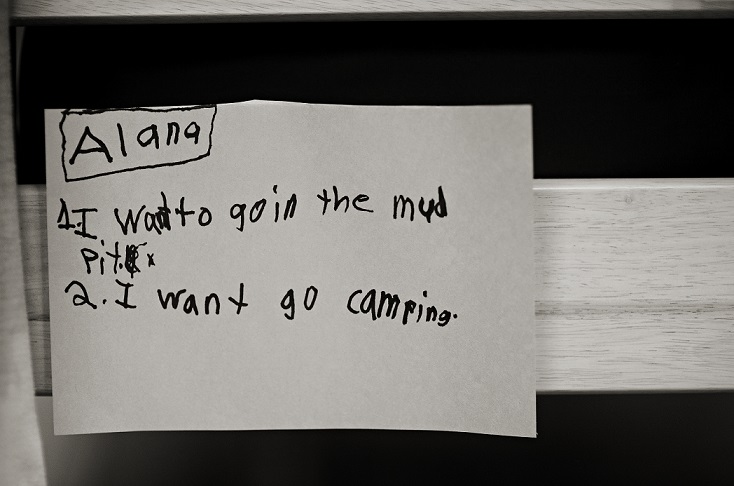 Alana
1. I want to go in the mud
pit.
2. I want go camping.